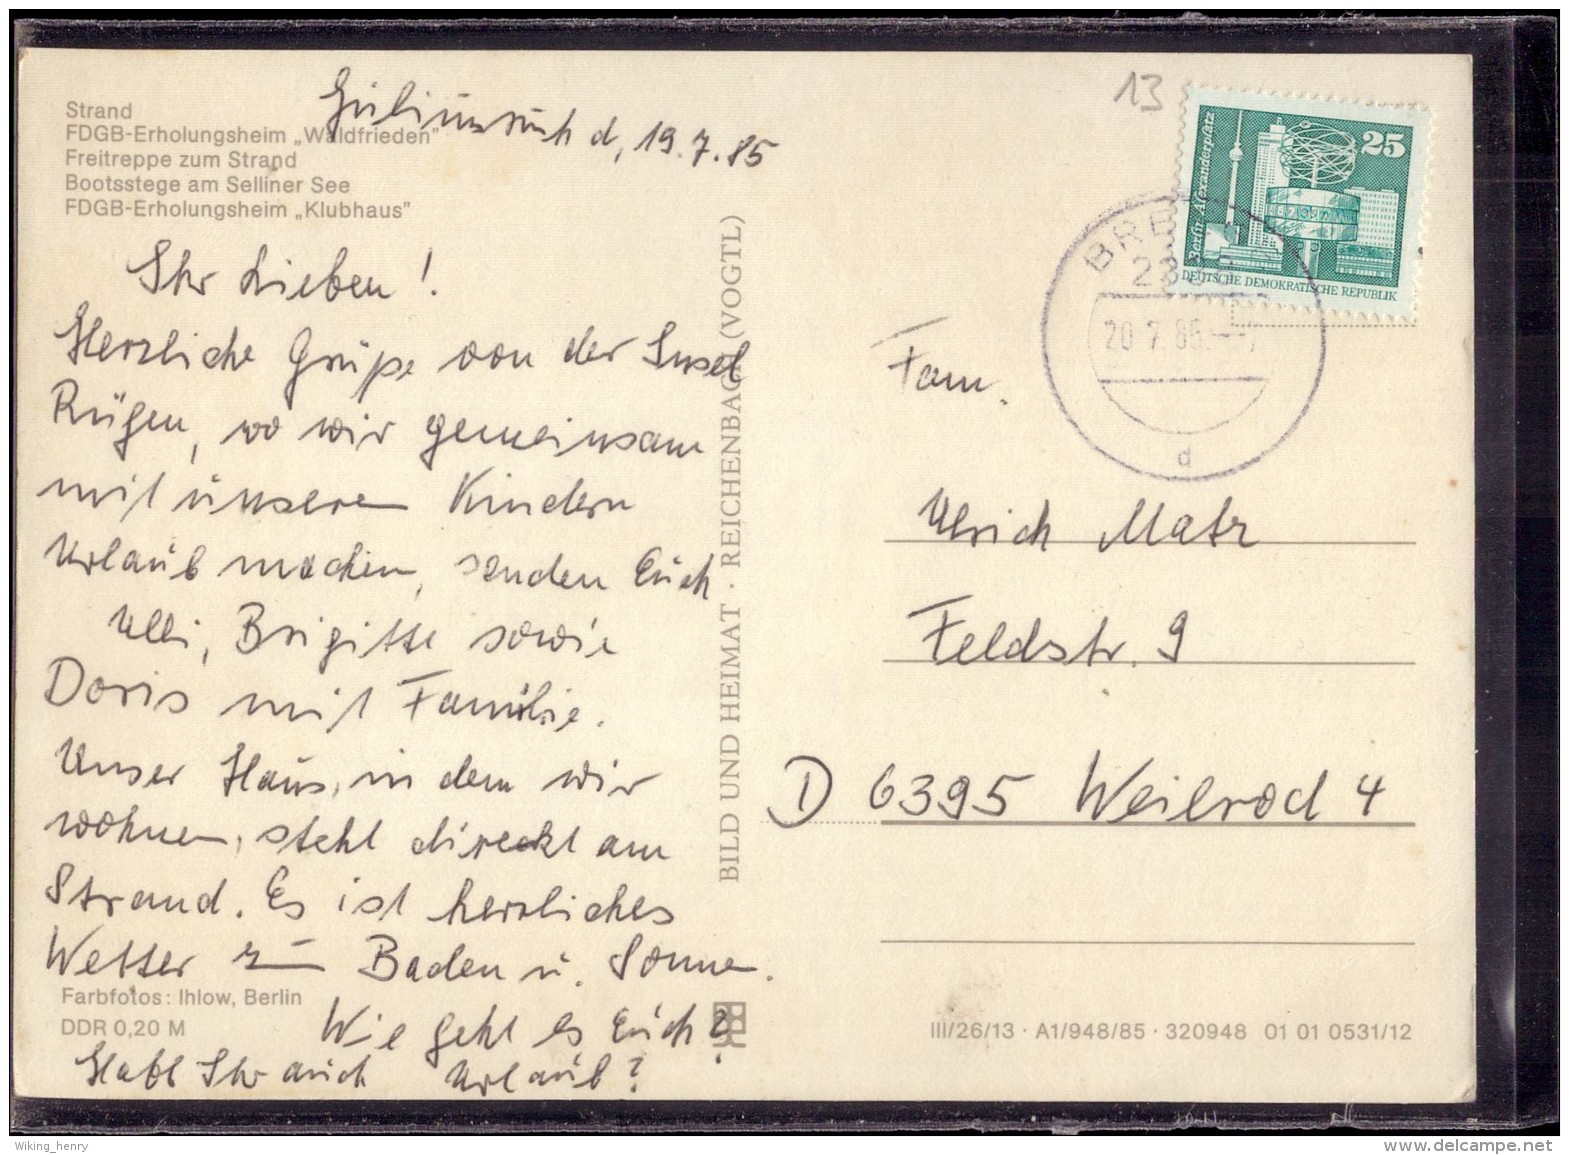 Strand
FDGB-Erholungsheim „Waldfrieden"
Freitreppe zum Strand
Bootsstege am Selliner See
FDGB-Erholungsheim „Klubhaus"
d, 19.7.85
Ihr Lieben!
Herzliche Grüße von der Insel
Rügen, wo wir gemeinsam
mit unseren Kindern
Urlaub machen, senden Euch
Ulli, Brigitte sowie
Doris mit Familie.
Unser Haus, in dem wir
wohnen, steht direckt am
Strand. Es ist herrliches
Wetter zum Baden u. Sonnen.
Wie geht es Euch?
Habt Ihr auch Urlaub?
Farbfotos: Ihlow, Berlin
DDR 0,20 M
BILD UND HEIMAT · REICHENBACH (VOGTL)
13
25
Berlin-Alexanderplatz
DEUTSCHE DEMOKRATISCHE REPUBLIK
BRE
20.7.85
d
Fam.
Ulrich Matz
Feldstr. 9
D 6395 Weilrod 4
III/26/13 · A1/948/85 · 320948 01 01 0531/12
Wiking_henry
www.delcampe.net